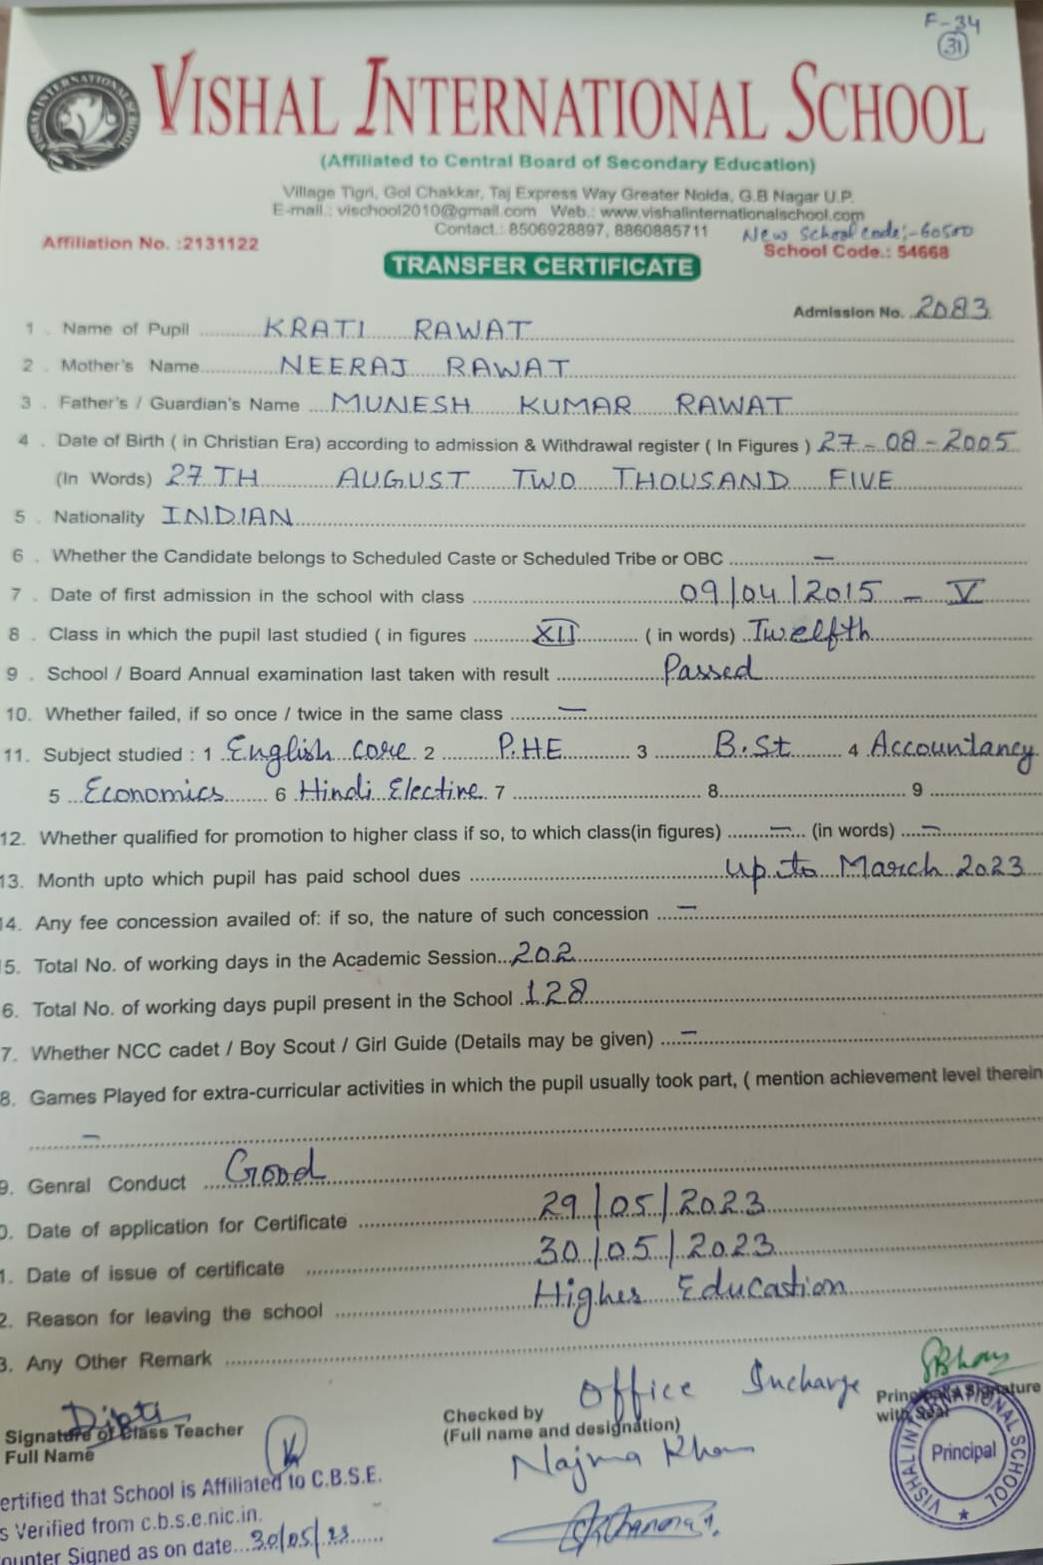 F-34
31
VISHAL INTERNATIONAL SCHOOL
(Affiliated to Central Board of Secondary Education)
Village Tigri, Gol Chakkar, Taj Express Way Greater Noida, G.B Nagar U.P.
E-mail.: vischool2010@gmail.com Web.: www.vishalinternationalschool.com
Contact.: 8506928897, 8860885711 New School code:-60500
Affiliation No. :2131122 School Code.: 54668
TRANSFER CERTIFICATE
Admission No. 2083
1 . Name of Pupil KRATI RAWAT
2 . Mother's Name NEERAJ RAWAT
3 . Father's / Guardian's Name MUNESH KUMAR RAWAT
4 . Date of Birth ( in Christian Era) according to admission & Withdrawal register ( In Figures ) 27-08-2005
(In Words) 27TH AUGUST TWO THOUSAND FIVE
5 . Nationality INDIAN
6 . Whether the Candidate belongs to Scheduled Caste or Scheduled Tribe or OBC —
7 . Date of first admission in the school with class 09/04/2015 - V
8 . Class in which the pupil last studied ( in figures XII ( in words) Twelfth
9 . School / Board Annual examination last taken with result Passed
10. Whether failed, if so once / twice in the same class —
11. Subject studied : 1 English core 2 P.HE 3 B.St 4 Accountancy
5 Economics 6 Hindi Elective 7 8 9
12. Whether qualified for promotion to higher class if so, to which class(in figures) — (in words) —
13. Month upto which pupil has paid school dues up to March 2023
14. Any fee concession availed of: if so, the nature of such concession —
5. Total No. of working days in the Academic Session 202
6. Total No. of working days pupil present in the School 128
7. Whether NCC cadet / Boy Scout / Girl Guide (Details may be given) —
8. Games Played for extra-curricular activities in which the pupil usually took part, ( mention achievement level therein
—
9. Genral Conduct Good
0. Date of application for Certificate 29/05/2023
1. Date of issue of certificate 30/05/2023
2. Reason for leaving the school Higher Education
3. Any Other Remark
Office Incharge
Principal's Signature
with Seal
Dipti
Signature of Class Teacher
Full Name
Checked by
(Full name and designation)
Najma Khan
VISHAL INTERNATIONAL SCHOOL
Principal
ertified that School is Affiliated to C.B.S.E.
s Verified from c.b.s.e.nic.in.
ounter Signed as on date 30/05/23